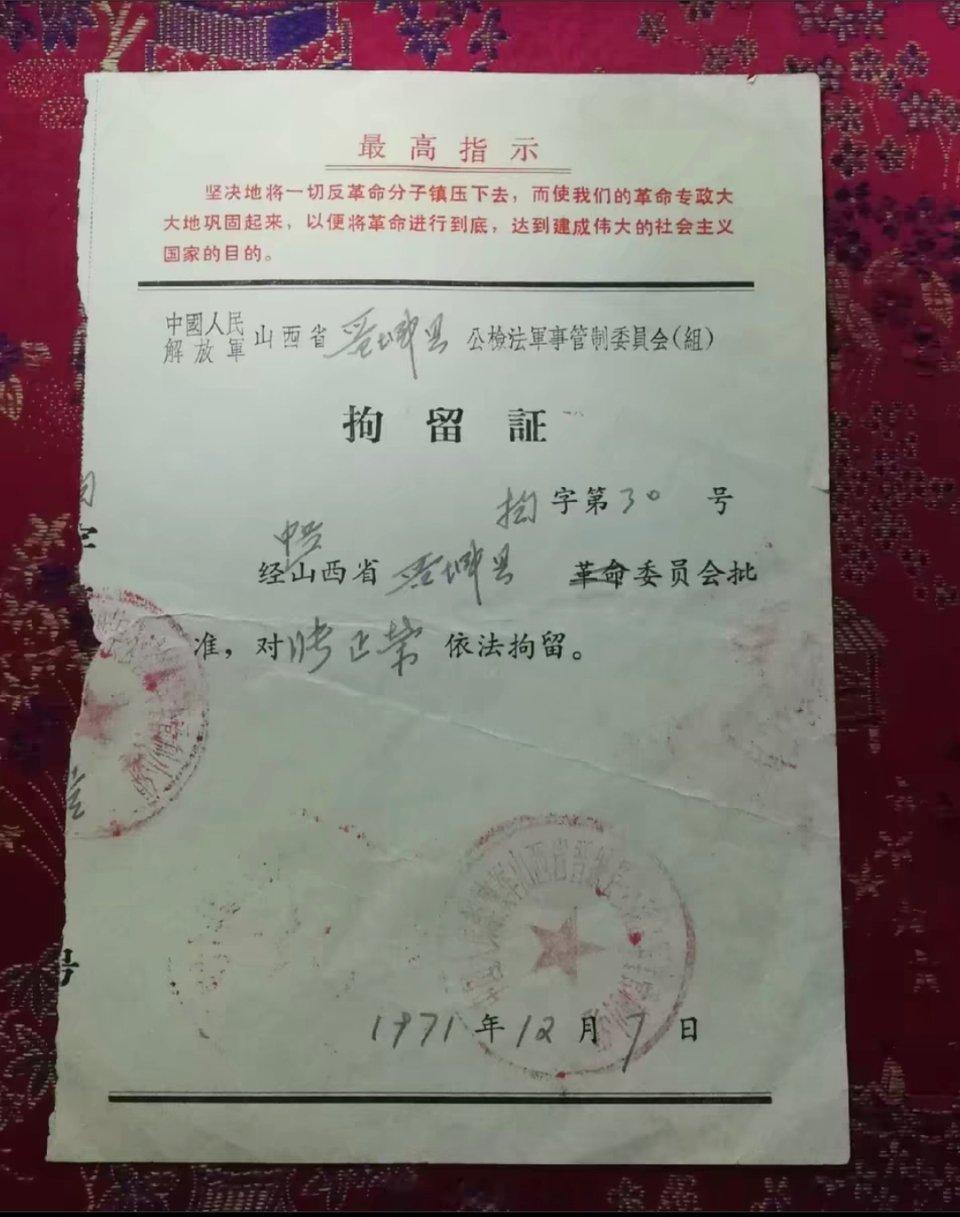 最高指示
坚决地将一切反革命分子镇压下去，而使我们的革命专政大
大地巩固起来，以便将革命进行到底，达到建成伟大的社会主义
国家的目的。
中國人民
解放軍 山西省 晋城县 公檢法軍事管制委員会(組)
拘留証
拘字第30号
中共
经山西省 晋城县 革命委员会批
准，对 张正荣 依法拘留。
1971年12月7日
号